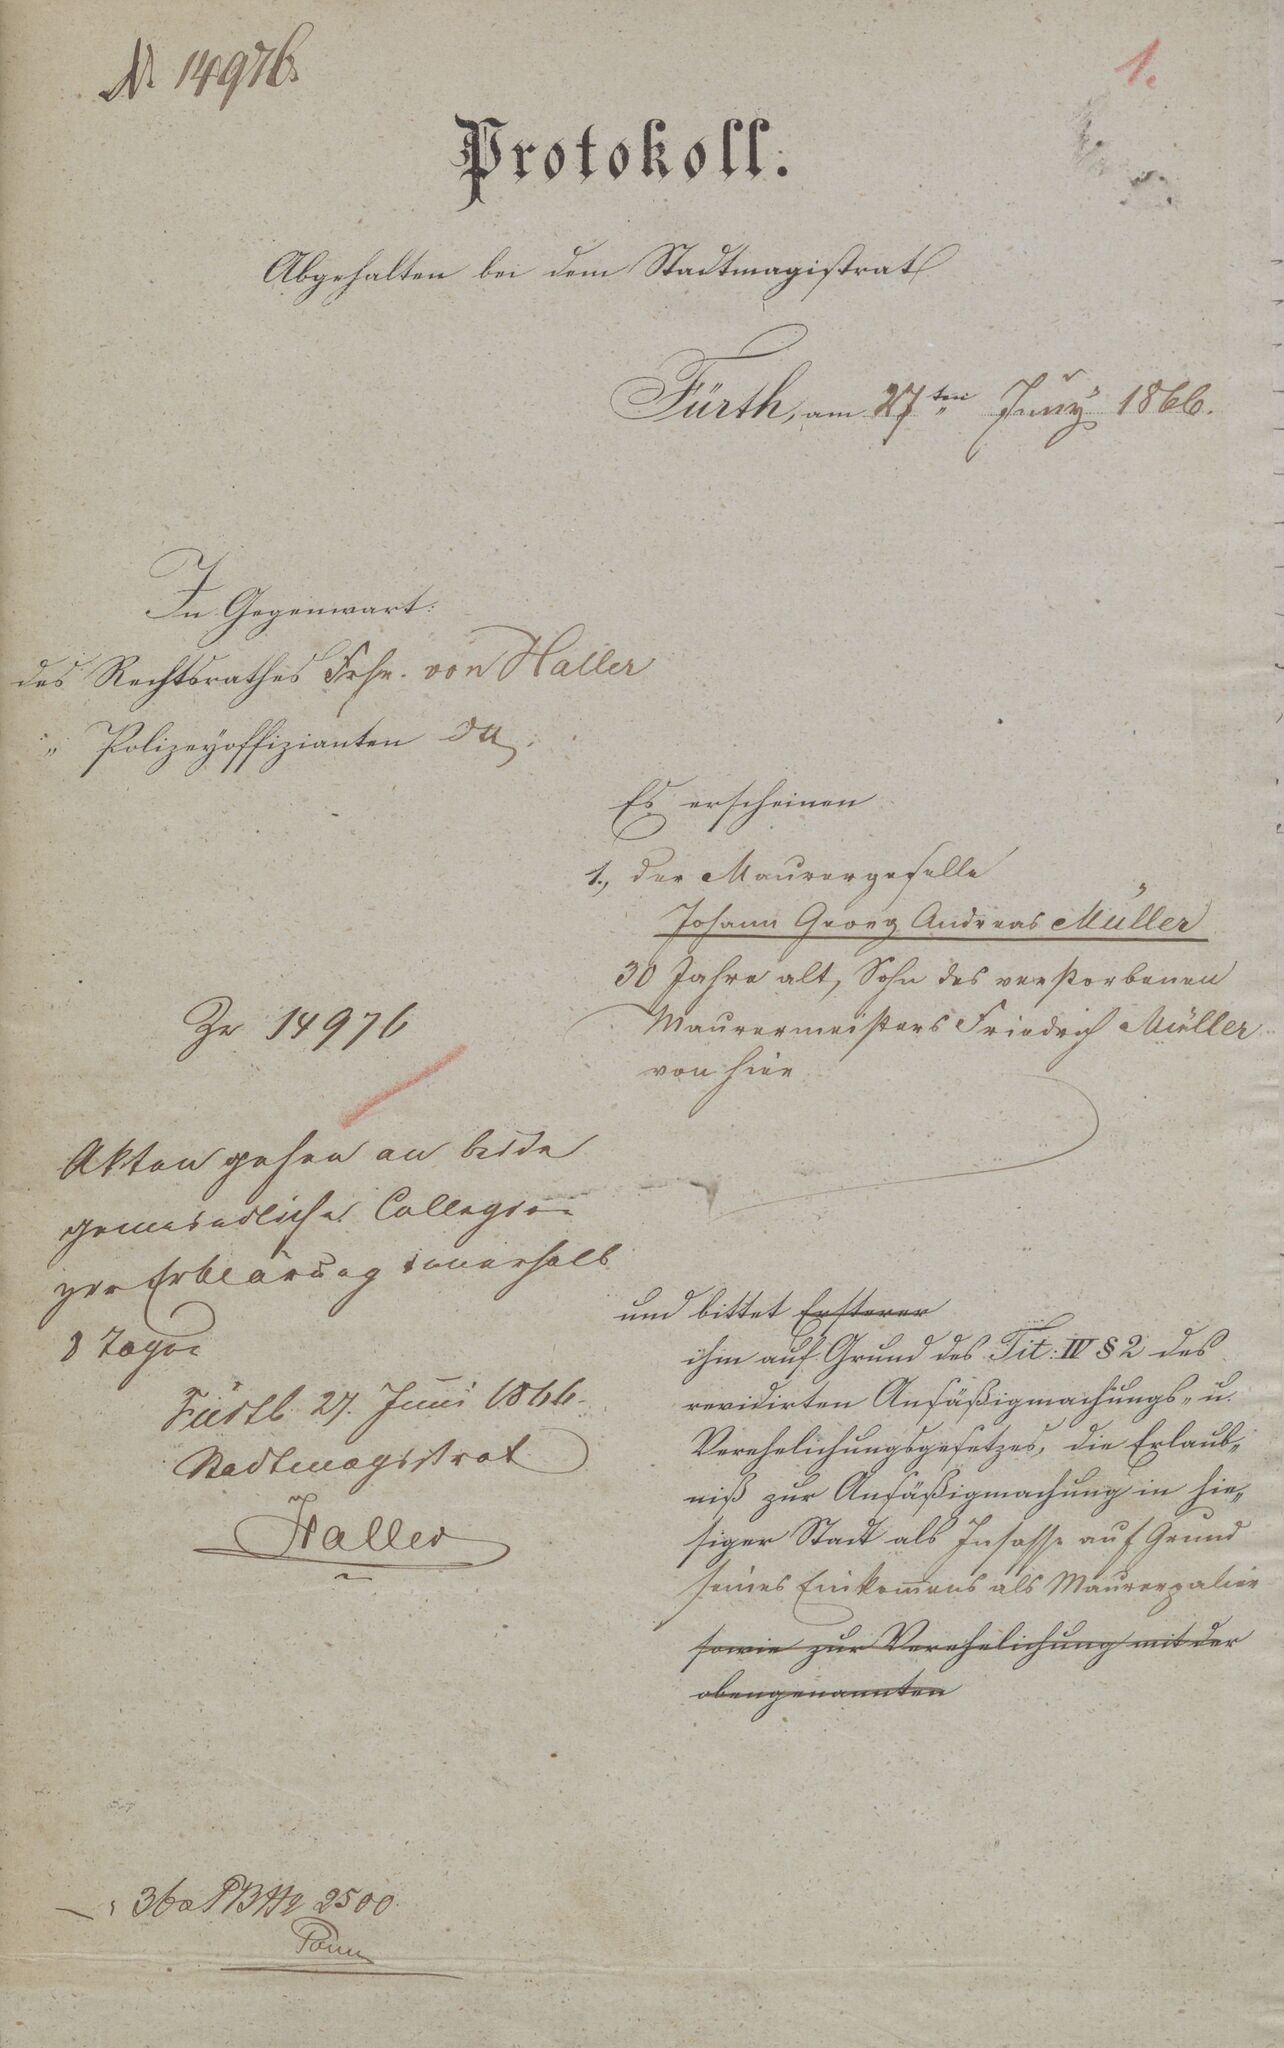 № 14976.
1.
Protokoll.
Abgehalten bei dem Stadtmagistrat
Fürth, am 27ten Juny 1866.
In Gegenwart:
des Rechtsrathes Frhr. von Haller
" Polizeyoffizianten
Es erscheinen
1., der Maurergeselle
Johann Georg Andreas Müller
30 Jahre alt, Sohn des verstorbenen
Maurermeisters Friedrich Müller
von hier
Zu 14976
Akten gehen an beide
gemeindliche Collegien
zur Erklärung innerhalb
8 Tagen
Fürth 27. Juni 1866.
Stadtmagistrat
Haller
und bittet Ersterer
ihm auf Grund des Tit: IV § 2 des
revidirten Ansäßigmachungs- u.
Verehelichungsgesetzes, die Erlaub-
niß zur Ansäßigmachung in hie-
siger Stadt als Insasse auf Grund
seines Einkommens als Maurerpalier
sowie zur Verehelichung mit der
obengenannten
36 2500.